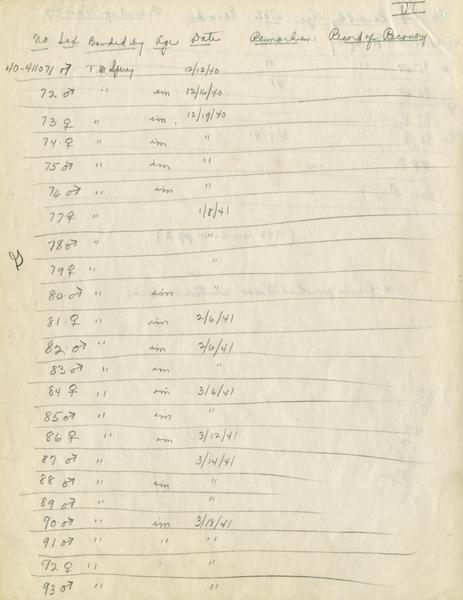 VI
No Sex Banded by Age Date Remarks Record of Recovery
40-41071 ♂ T.M. 12/12/40
72 ♂ " im 12/16/40
73 ♀ " im. 12/19/40
74 ♀ " im "
75 ♂ " im "
76 ♂ " im "
77 ♀ " 1/8/41
78 ♂ " "
79 ♀ " "
80 ♂ " im "
81 ♀ " im 2/6/41
82 ♂ " im 2/6/41
83 ♂ " im "
84 ♀ " im 3/6/41
85 ♂ " im "
86 ♀ " im 3/12/41
87 ♂ " 3/14/41
88 ♂ " im "
89 ♂ " "
90 ♂ " im 3/18/41
91 ♂ " " "
92 ♀ " "
93 ♂ " "